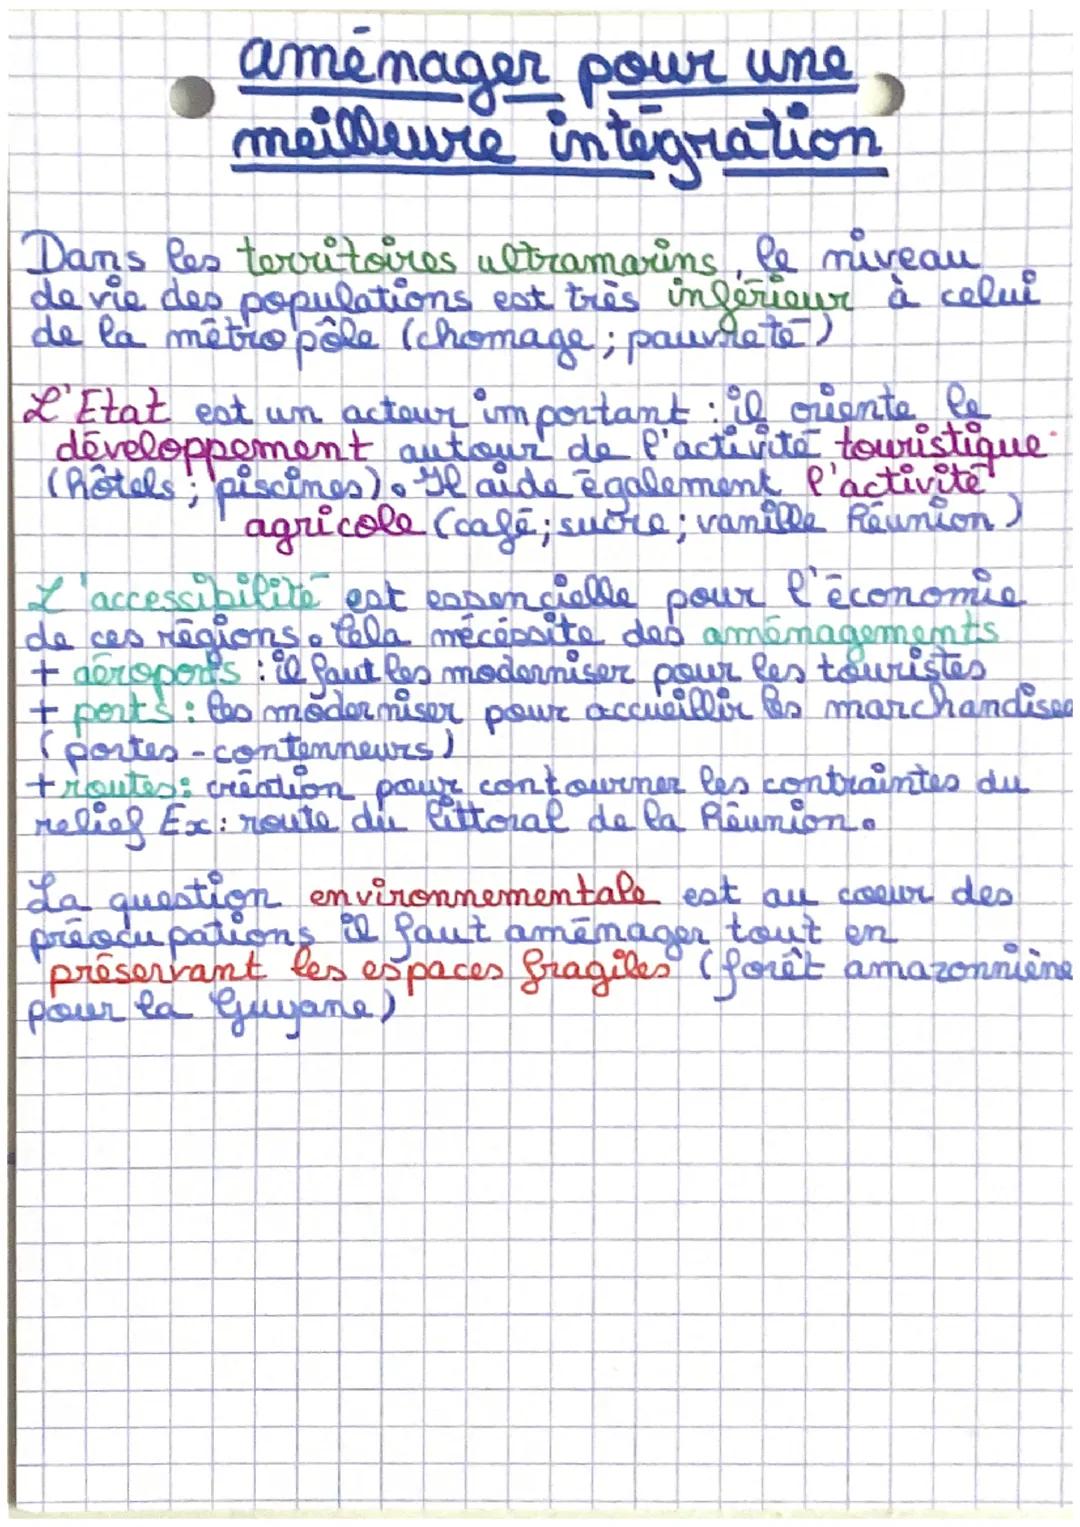 aménager pour une
meilleure intégration
Dans les territoires ultramarins, le niveau
de vie des populations est très inférieur à celui
de la métropôle (chomage ; pauvreté)
L'Etat est un acteur important : il oriente le
développement autour de l'activité touristique
(hôtels ; piscines). Il aide également l'activité
agricole (café ; sucre ; vanille Réunion)
L'accessibilité est essencielle pour l'économie
de ces régions. Cela nécéssite des aménagements
+ aéroports : il faut les moderniser pour les touristes
+ ports : les moderniser pour accueillir les marchandises
(portes-contenneurs)
+ routes : création pour contourner les contraintes du
relief Ex : route du littoral de la Réunion.
La question environnementale est au coeur des
préocupations il faut aménager tout en
préservant les espaces fragiles (forêt amazonnière
pour la Guyane)